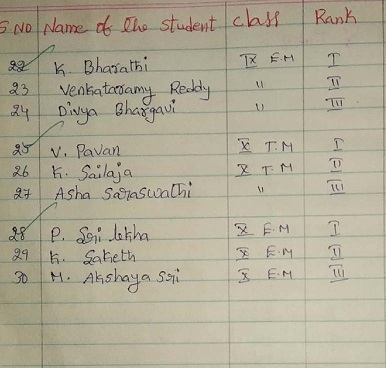 S NO Name of the student class Rank
22 K. Bharathi IX E.M I
23 Venkataramy Reddy " II
24 Divya Bhargavi " III
25 V. Pavan X T.M I
26 K. Sailaja X T.M II
27 Asha Saraswathi " III
28 P. Sri lekha X E.M I
29 K. Saketh X E.M II
30 M. Akshaya Sri X E.M III